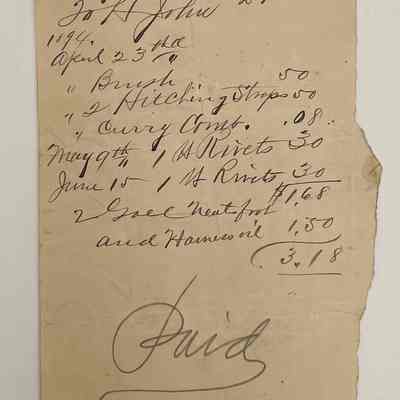 To H John Dr
1894.
April 23rd "
" Brush 50
" 2 Hitching Straps 50
" Curry Comb. .08
May 9th " 1 lb Rivets 30
June 15 1 lb Rivets 30
$1.68
2 Neatsfoot
and Harness oil 1.50
3.18
Paid